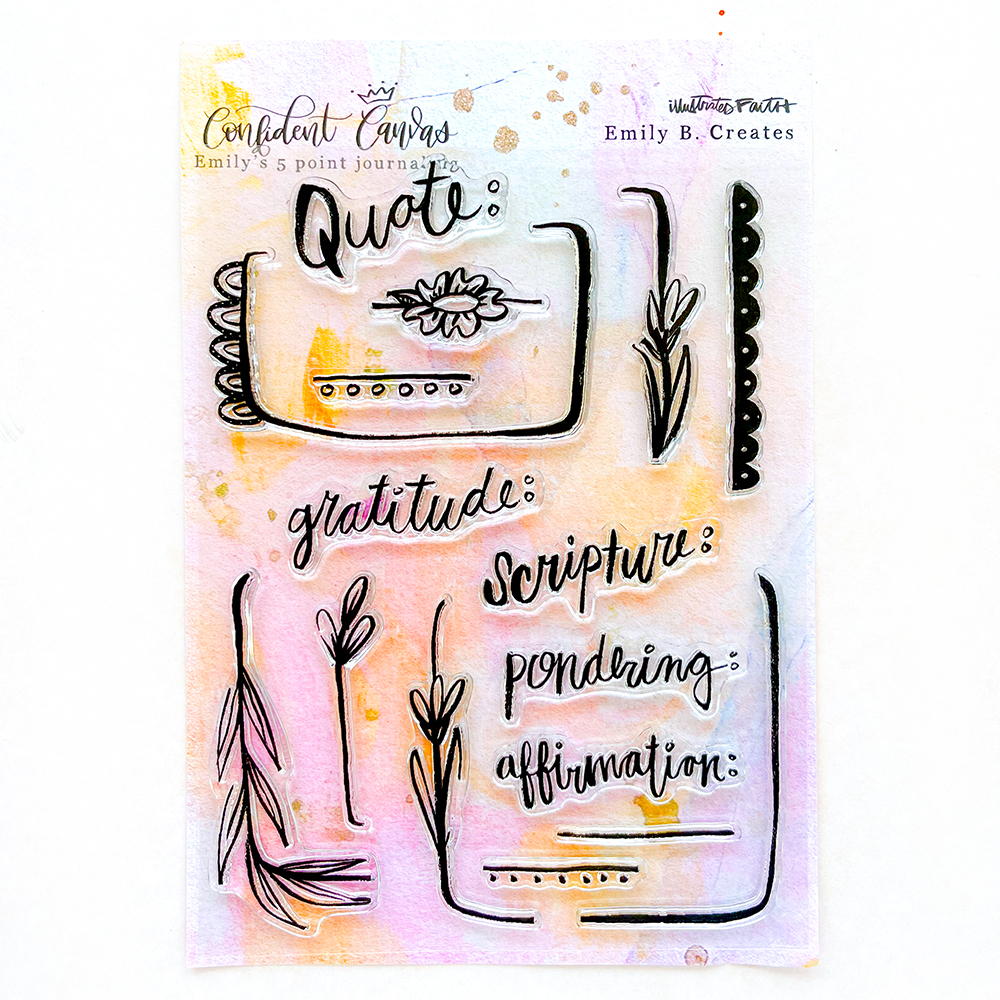 Confident Canvas
Emily's 5 point journaling
illustrated FAITH
Emily B. Creates
Quote:
gratitude:
scripture:
pondering:
affirmation: